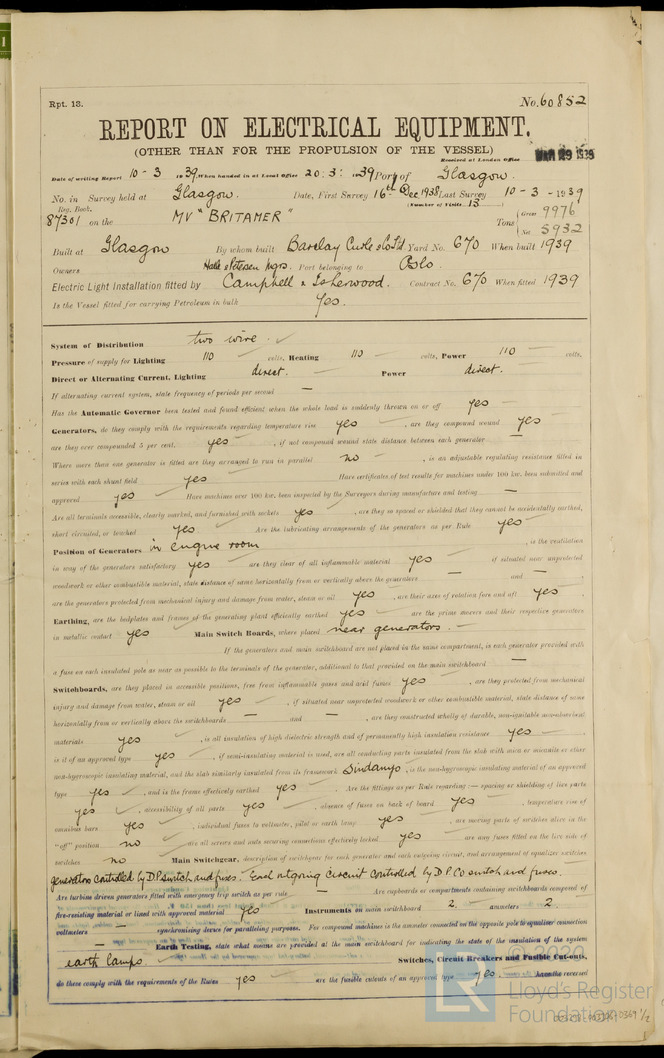 Rpt. 13.
No. 60852
REPORT ON ELECTRICAL EQUIPMENT.
(OTHER THAN FOR THE PROPULSION OF THE VESSEL)
Received at London Office MAR 29 1939
Date of writing Report 10-3 1939 When handed in at Local Office 20.3. 1939 Port of Glasgow.
No. in Survey held at Glasgow. Date, First Survey 16th Dec 1938 Last Survey 10-3-1939
Reg. Book. (Number of Visits 13)
87301 on the MV "BRITAMER" Tons { Gross 9976
Net 5932
Built at Glasgow By whom built Barclay Curle & Co Ltd Yard No. 670 When built 1939
Owners Port belonging to Oslo.
Electric Light Installation fitted by Campbell & Isherwood. Contract No. 670 When fitted 1939
Is the Vessel fitted for carrying Petroleum in bulk Yes.
System of Distribution two wire.
Pressure of supply for Lighting 110 volts, Heating 110 volts, Power 110 volts.
Direct or Alternating Current, Lighting direct. Power direct.
If alternating current system, state frequency of periods per second —
Has the Automatic Governor been tested and found efficient when the whole load is suddenly thrown on or off yes
Generators, do they comply with the requirements regarding temperature rise yes, are they compound wound yes
are they over compounded 5 per cent. yes, if not compound wound state distance between each generator —
Where more than one generator is fitted are they arranged to run in parallel no, is an adjustable regulating resistance fitted in
series with each shunt field yes Have certificates of test results for machines under 100 kw. been submitted and
approved yes Have machines over 100 kw. been inspected by the Surveyors during manufacture and testing —
Are all terminals accessible, clearly marked, and furnished with sockets yes, are they so spaced or shielded that they cannot be accidentally earthed,
short circuited, or touched yes Are the lubricating arrangements of the generators as per Rule yes
Position of Generators in engine room, is the ventilation
in way of the generators satisfactory yes are they clear of all inflammable material yes if situated near unprotected
woodwork or other combustible material, state distance of same horizontally from or vertically above the generators — and —
are the generators protected from mechanical injury and damage from water, steam or oil yes, are their axes of rotation fore and aft yes
Earthing, are the bedplates and frames of the generating plant efficiently earthed yes are the prime movers and their respective generators
in metallic contact yes Main Switch Boards, where placed near generators.
If the generators and main switchboard are not placed in the same compartment, is each generator provided with
a fuse on each insulated pole as near as possible to the terminals of the generator, additional to that provided on the main switchboard —
Switchboards, are they placed in accessible positions, free from inflammable gases and acid fumes yes, are they protected from mechanical
injury and damage from water, steam or oil yes, if situated near unprotected woodwork or other combustible material, state distance of same
horizontally from or vertically above the switchboards — and —, are they constructed wholly of durable, non-ignitable non-absorbent
materials yes, is all insulation of high dielectric strength and of permanently high insulation resistance yes
is it of an approved type yes, if semi-insulating material is used, are all conducting parts insulated from the slab with mica or micanite or other
non-hygroscopic insulating material, and the slab similarly insulated from its framework Sindanyo, is the non-hygroscopic insulating material of an approved
type yes, and is the frame effectively earthed yes Are the fittings as per Rule regarding:— spacing or shielding of live parts
yes, accessibility of all parts yes, absence of fuses on back of board yes, temperature rise of
omnibus bars yes, individual fuses to voltmeter, pilot or earth lamp yes, are moving parts of switches alive in the
"off" position no are all screws and nuts securing connections effectively locked yes are any fuses fitted on the live side of
switches no Main Switchgear, description of switchgear for each generator and each outgoing circuit, and arrangement of equalizer switches
generators controlled by D.P. switch and fuses. Each outgoing circuit controlled by D.P. CO switch and fuses.
Are turbine driven generators fitted with emergency trip switch as per rule — Are cupboards or compartments containing switchboards composed of
fire-resisting material or lined with approved material yes Instruments on main switchboard 2. ammeters 2
voltmeters — synchronising device for paralleling purposes. For compound machines is the ammeter connected on the opposite pole to equalizer connection
— Earth Testing, state what means are provided at the main switchboard for indicating the state of the insulation of the system
earth lamps Switches, Circuit Breakers and Fusible Cut-outs,
do these comply with the requirements of the Rules yes are the fusible cutouts of an approved type yes. have the reversed
© 2020
Lloyd's Register
Foundation
LR
1/2